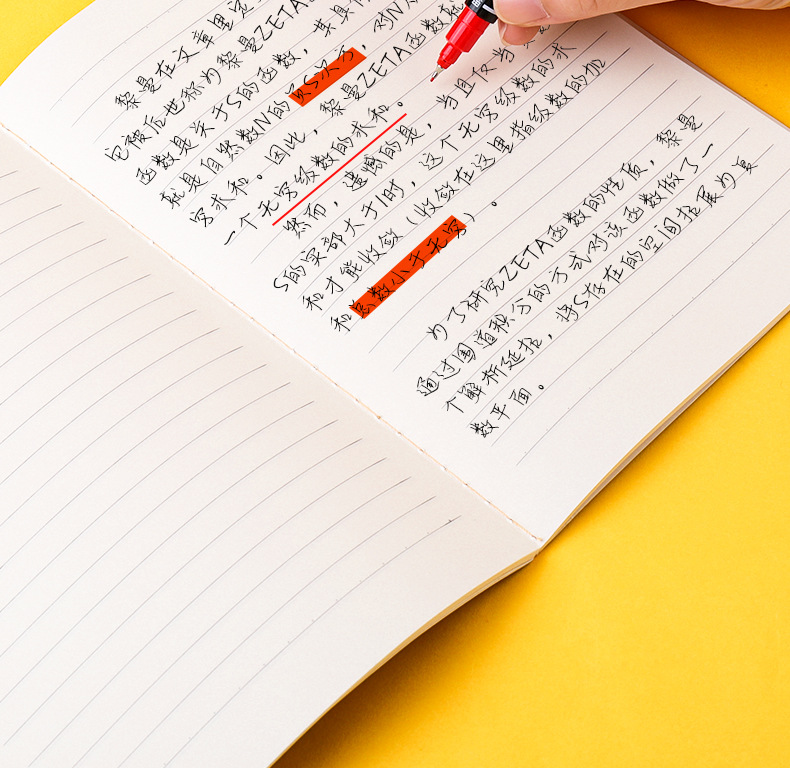 黎曼在文章里定
它被后世称为黎曼ZETA
函数是关于S的函数，其具
就是自然数N的负S次方，对N从
穷求和。因此，黎曼ZETA函数就
一个无穷级数的求和。
然而，遗憾的是，当且仅当
S的实部大于1时，这个无穷级数的求
和才能收敛（收敛在这里指级数的加
和总数小于无穷）。
为了研究ZETA函数的性质，黎曼
通过围道积分的方式对该函数做了一
个解析延拓，将S存在的空间拓展为复
数平面。